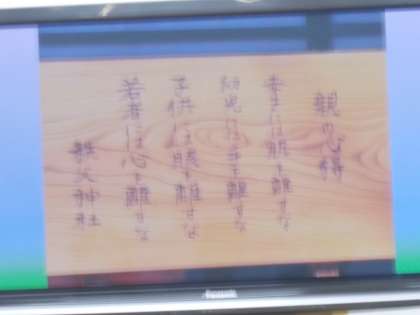 親の心得
赤子は肌を離すな
幼児は手を離すな
子供は眼を離すな
若者は心を離すな
秩父神社